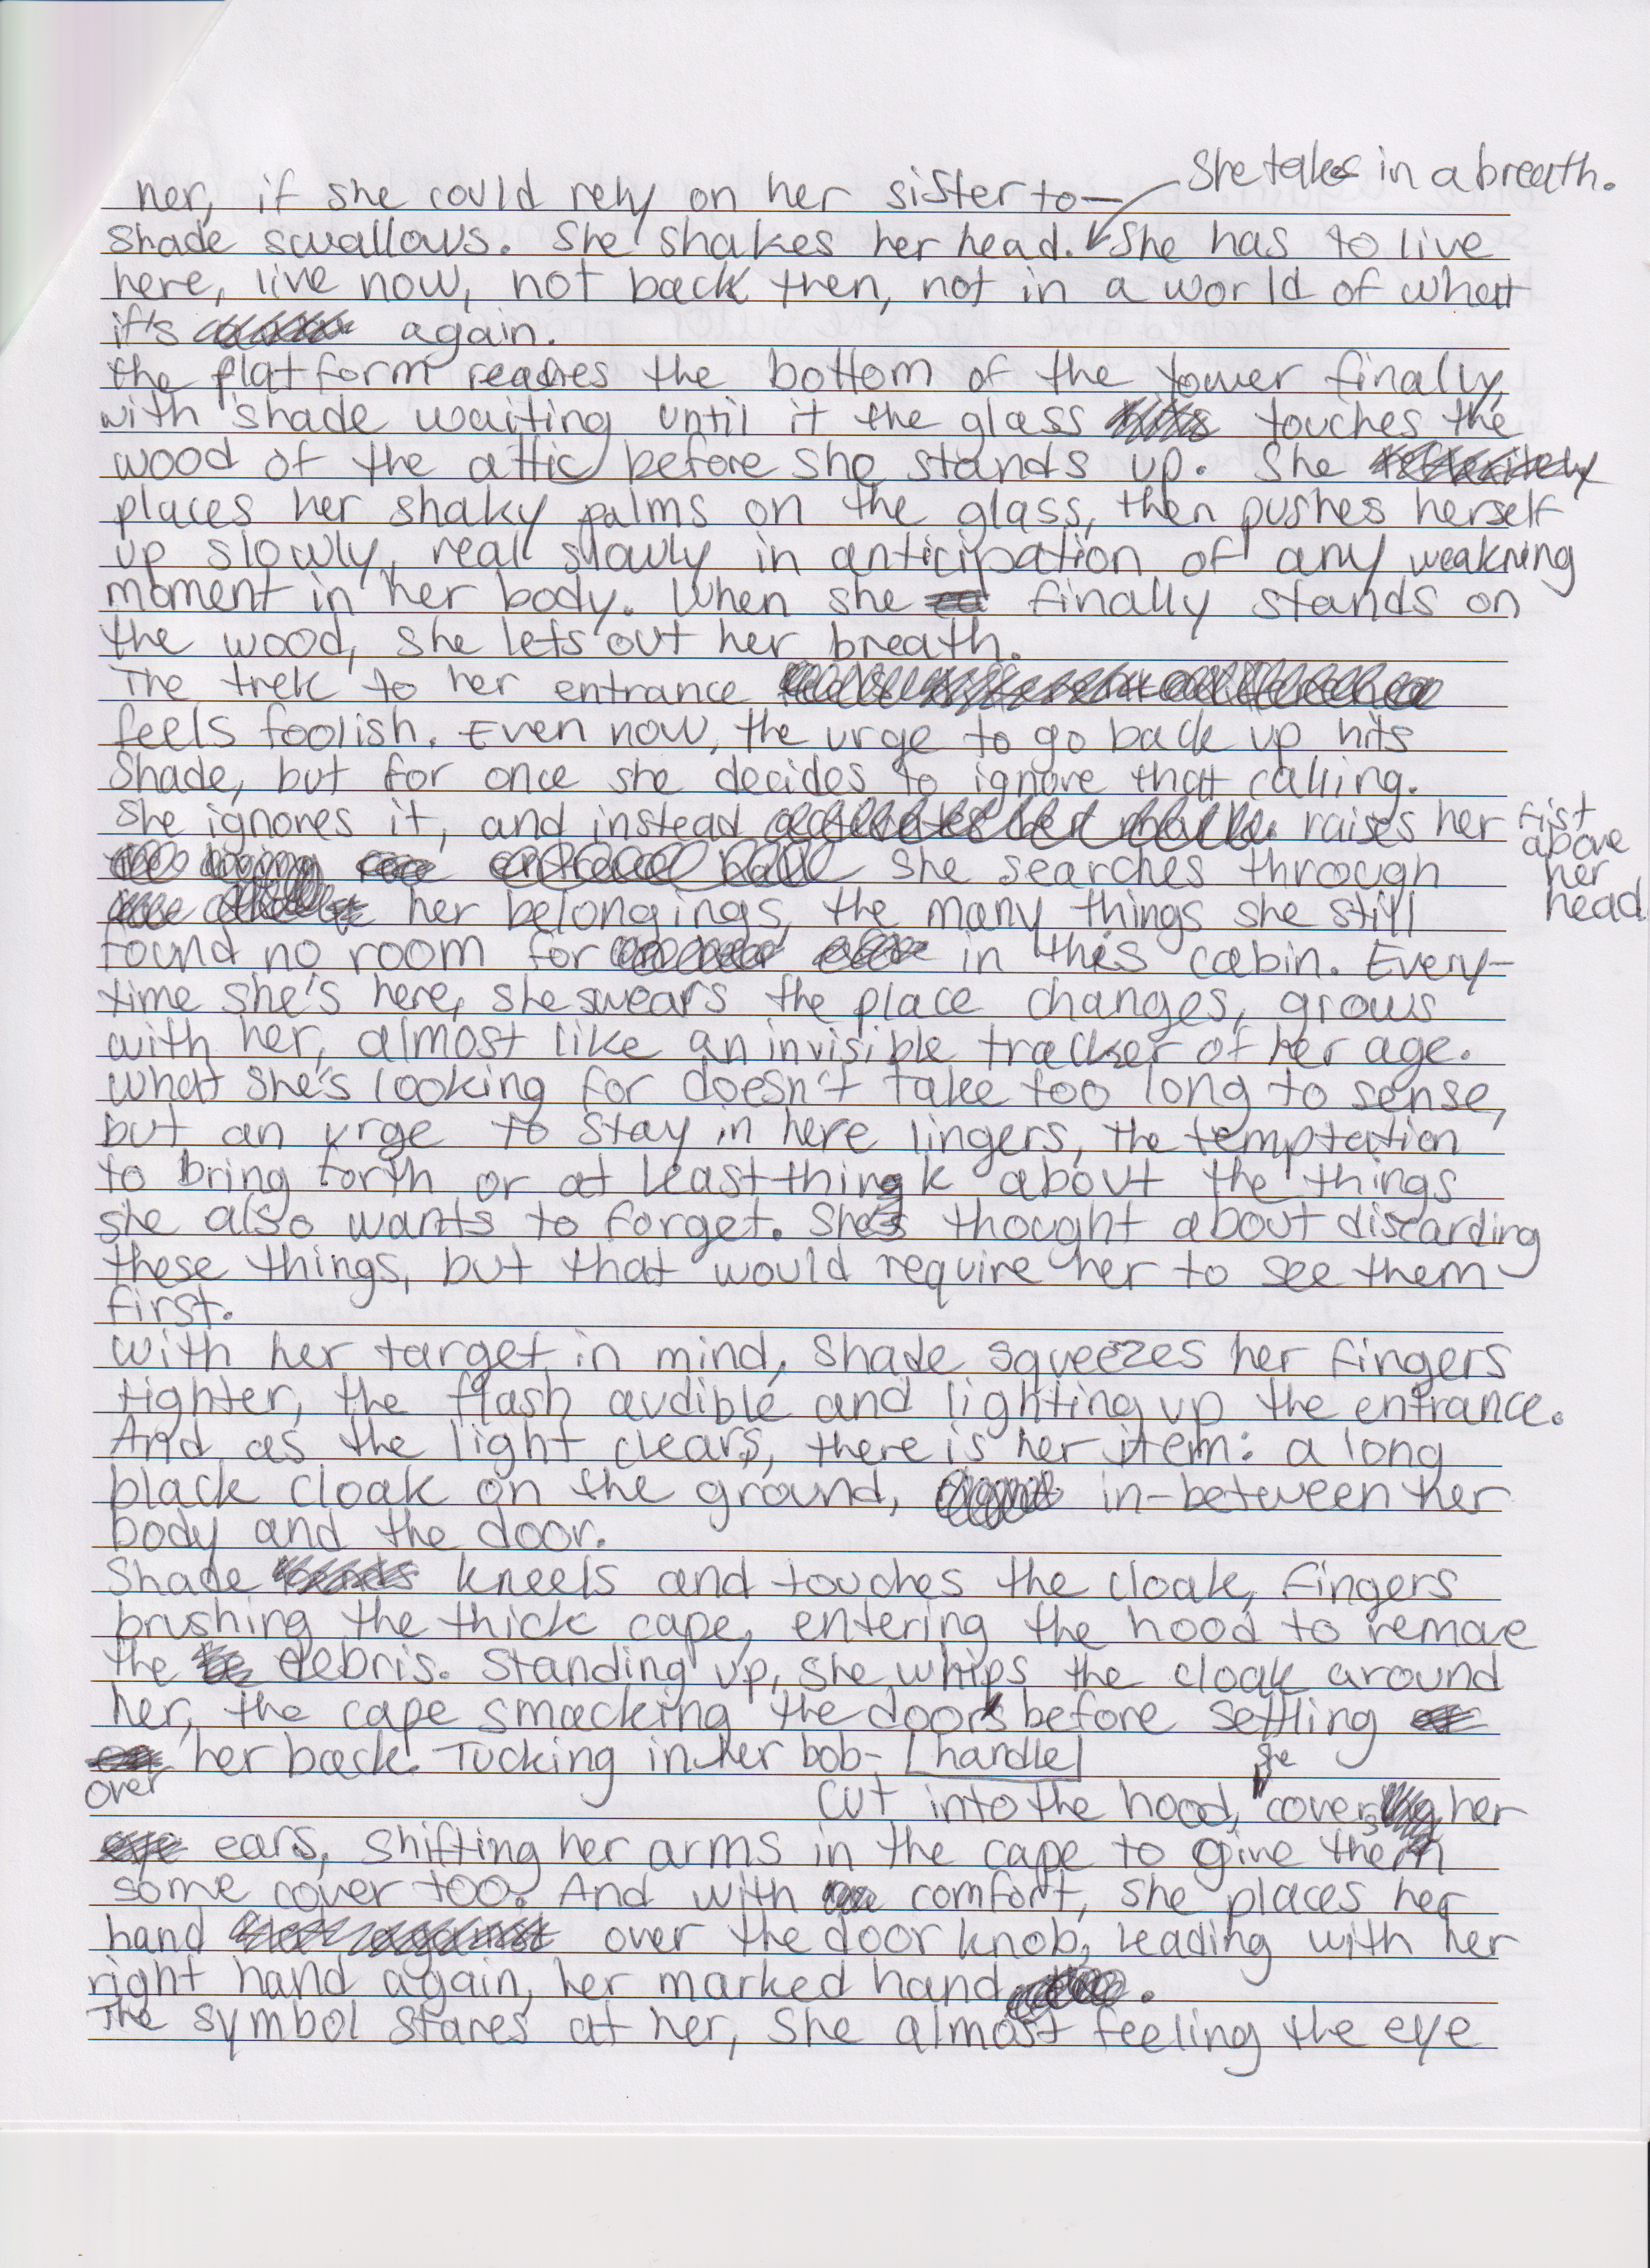 She takes in a breath.
her, if she could rely on her sister to—
Shade swallows. She shakes her head. She has to live
here, live now, not back then, not in a world of what
if's again.
The platform reaches the bottom of the tower finally,
with Shade waiting until it the glass touches the
wood of the attic before she stands up. She
places her shaky palms on the glass, then pushes herself
up slowly, real slowly in anticipation of any weakning
moment in her body. When she finally stands on
the wood, she lets out her breath.
The trek to her entrance
feels foolish. Even now, the urge to go back up hits
Shade, but for once she decides to ignore that calling.
She ignores it, and instead raises her fist
above
her
head
She searches through
her belongings, the many things she still
found no room for in this cabin. Every-
time she's here, she swears the place changes, grows
with her, almost like an invisible tracker of her age.
What she's looking for doesn't take too long to sense,
but an urge to stay in here lingers, the temptation
to bring forth or at least think about the things
she also wants to forget. She's thought about discarding
these things, but that would require her to see them
first.
With her target in mind, Shade squeezes her fingers
tighter, the flash audible and lighting up the entrance.
And as the light clears, there is her item: a long
black cloak on the ground, in-between her
body and the door.
Shade kneels and touches the cloak, fingers
brushing the thick cape, entering the hood to remove
the debris. Standing up, she whips the cloak around
her, the cape smacking the door before settling
over her back. Tucking in her bob- [handle]
cut into the hood, she covers her
ears, shifting her arms in the cape to give them
some cover too. And with comfort, she places her
hand over the door knob, leading with her
right hand again, her marked hand.
The symbol stares at her, she almost feeling the eye